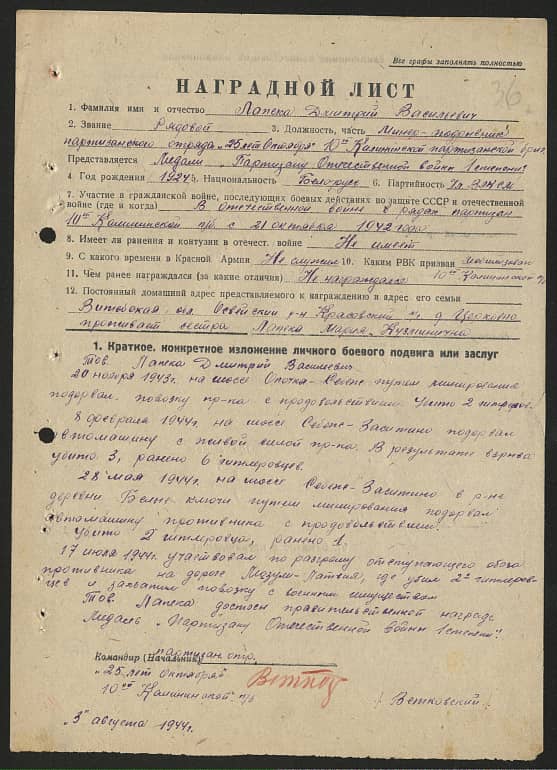 Все графы заполнять полностью
36
НАГРАДНОЙ ЛИСТ
1. Фамилия имя и отчество Лапека Дмитрий Васильевич
2. Звание Рядовой 3. Должность, часть Минер-подрывник
партизанского отряда "25 лет Октября" 10ой Калининской партизанской бриг.
Представляется Медали "Партизану Отечественной войны I степени"
4. Год рождения 1924 5. Национальность Белорус 6. Партийность Чл. ВЛКСМ
7. Участие в гражданской войне, последующих боевых действиях по защите СССР и отечественной
войне (где и когда) В отечественной войне в рядах партизан
10ой Калининской п/б с 21 октября 1942 года
8. Имеет ли ранения и контузии в отечест. войне Не имеет
9. С какого времени в Красной Армии Не служил 10. Каким РВК призван мобилизован
11. Чем ранее награждался (за какие отличия) Не награждался 10ой Калининской п/б
12. Постоянный домашний адрес представляемого к награждению и адрес его семьи
Витебская обл. Освейский р-н Красовский с/с д. Церковно
проживает сестра Лапека Мария Кузминична
1. Краткое, конкретное изложение личного боевого подвига или заслуг
Тов. Лапека Дмитрий Васильевич
20 ноября 1943г. на шоссе Опочка-Себеж путем минирования
подорвал повозку пр-ка с продовольствием. Убито 2 гитлеровц.
8 февраля 1944г. на шоссе Себеж-Заситино подорвал
автомашину с живой силой пр-ка. В результате взрыва
убито 3, ранено 6 гитлеровцев.
28 мая 1944г. на шоссе Себеж-Заситино в р-не
деревни Белые ключи путем минирования подорвал
автомашину противника с продовольствием.
Убито 2 гитлеровца, ранено 1.
17 июля 1944г. участвовал по разгрому отступающего обоза
противника на дороге Латвия, где убил 2х гитлеров-
цев и захватил повозку с военным имуществом
Тов. Лапека достоин правительственной награде
Медаль "Партизану Отечественной войны I степени".
Командир (Начальник) партизан отр.
"25 лет Октября"
10ой Калининской п/б
/Ветковский/
"3" августа 1944г.